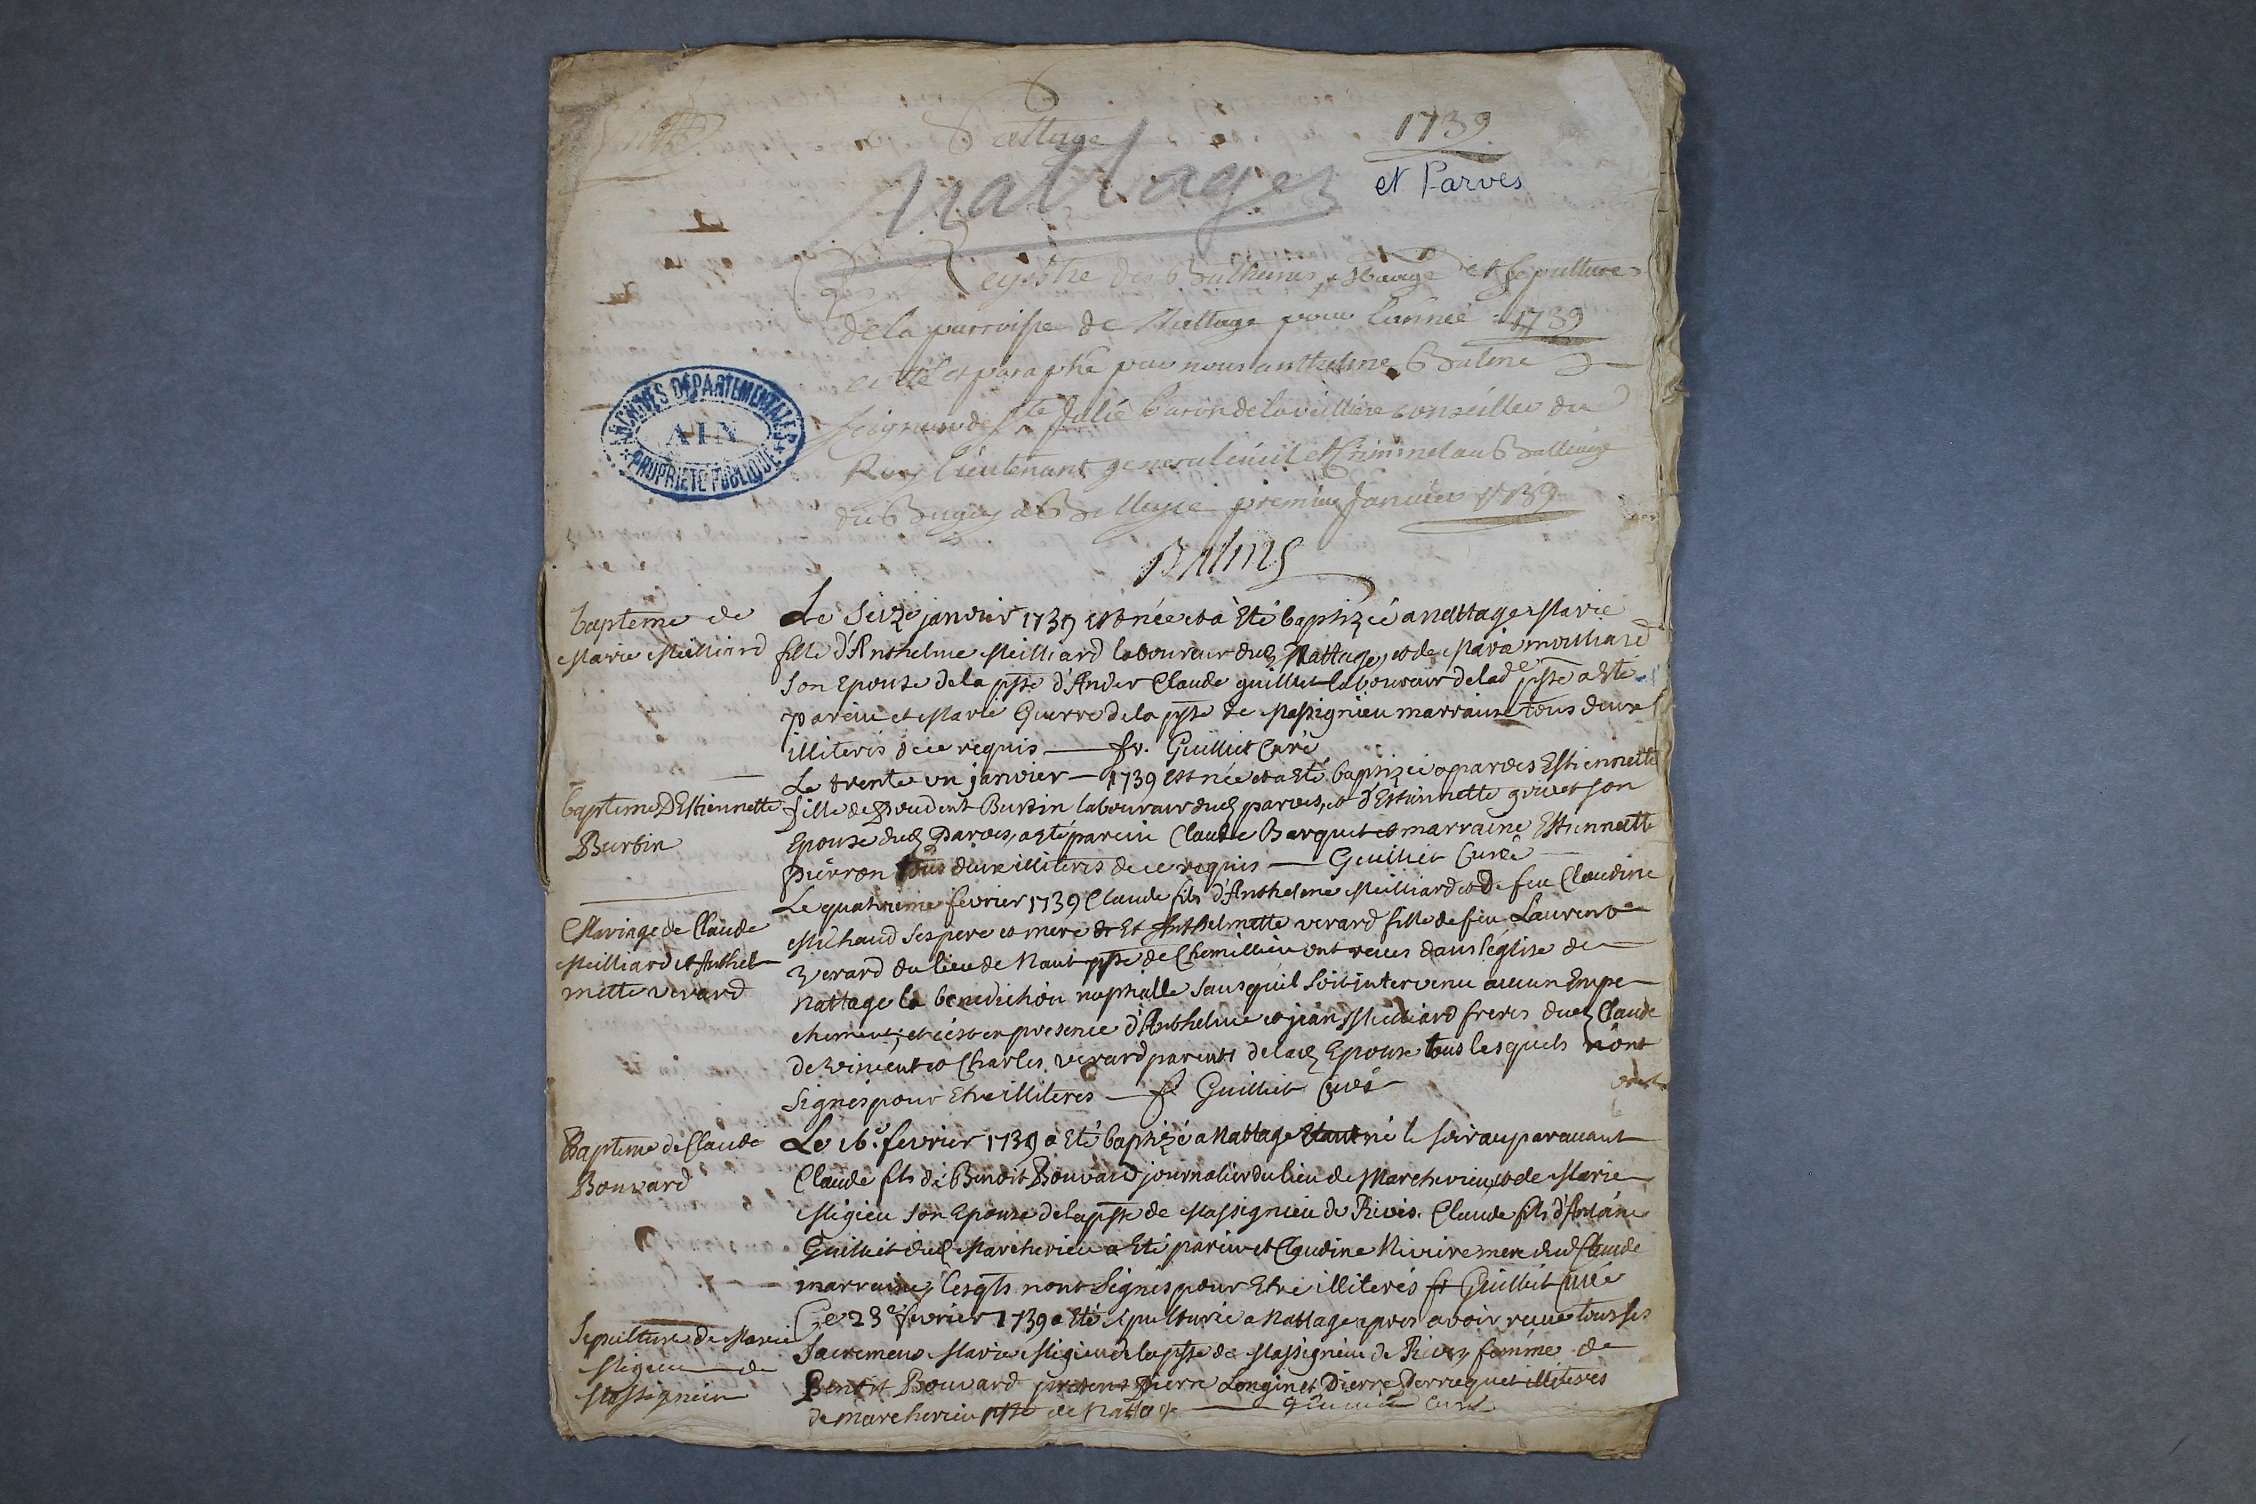 Nattage
1739
Nattages
et Parves
Registre des Batthemes, Mariage et Sepultures
de la parroisse de Nattage pour l'année 1739
cotté et paraphé par nous anthelme Balme
seigneur de Ste Julie Baron de conseiller du
Roy lieutenant general civil et Criminel au Balliage
du Bugey a Belleys ce premier Janvier 1739
Balme
ARCHIVES DÉPARTEMENTALES
AIN
PROPRIÉTÉ PUBLIQUE
bapteme de
Marie Meilliard
Le seize janvier 1739 est née et a Eté baptizeé a nattage Marie
fille d'Anthelme Meilliard laboureur dud Nattage, et de Maria
son Epouse de la psse d'Ander Claude guilliet laboureur de lad psse a Eté
parein et Marie Guerre de la psse de Massignieu marraine tous deux
illiterés de ce requis — fr. Guilliet Curé
bapteme D'Estiennette
Burbin
Le trente un janvier — 1739 est née et a Eté baptizeé a parves Estiennette
fille de Prudent Burbin laboureur dud parves, et d'Estiennette grivet son
Epouse dud Parves, a eté parein Claude Barquet et marraine Estiennette
pierron tous deux illiterés de ce requis — Guilliet Curé
Mariage de Claude
Meilliard et Anthel-
mette verard
Le quatrieme fevrier 1739 Claude fils d'Anthelme Meilliard et De feu Claudine
Michaud ses pere et mere et Anthelmette verard fille de feu Laurent
verard du lieu de Nant psse de Chemillieu ont receu dans l'église de
Nattage la benediction nuptialle sans quil soit intervenu aucun Empe-
chement, et c'est en presence d'Anthelme et jean Meilliard freres dud Claude
de vincent et Charles verard parents de lad Epouse tous lesquels n'ont
signés pour Etre illiteres — fr Guilliet Curé
Bapteme de Claude
Bouvard
Le 16e fevrier 1739 a Eté baptizé a Nattage Etant né le soir auparavant
Claude fils de Benoit Bouvard journalier du lieu de Marcherieu, et de Marie
Migieu son Epouse de la psse de Massignieu de Rives. Claude fils d'Antoine
Guilliet dud Marcherieu a Eté parein et Claudine mere dud Claude
marraine, lesqls n'ont signés pour Etre illiterés fr Guilliet Curé
Sepulture de Marie
Migieu de
Massignieu
Le 23e fevrier 1739 a Eté sepulturée a Nattage apres avoir receu tous ses
sacremens Marie Migieu de la psse de Massignieu de Rives femme de
Benoit Bouvard presens Pierre Longin et Pierre Perruquet illiteres
de marcherieu psse de Nattage — Guilliet Curé